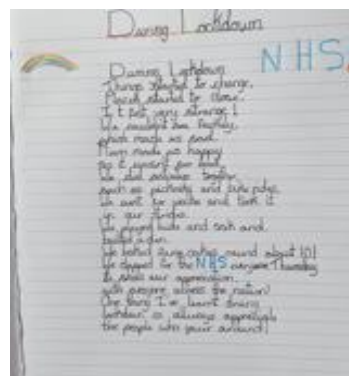 During Lockdown
NHS
During Lockdown
Things started to change,
Places started to close.
It felt very strange!
We couldn't see family,
which made us sad.
Mum made us happy
So it wasn't so bad.
We did together
such as picnics and bike rides.
We went for walks and took it
in our stride.
We played hide and seek and
built a den.
We baked cakes, round about 10!
We clapped for the NHS every Thursday
to show our appreciation
with everyone across the nation!
One thing I've learnt during
lockdown is always appreciate
the people who your around!